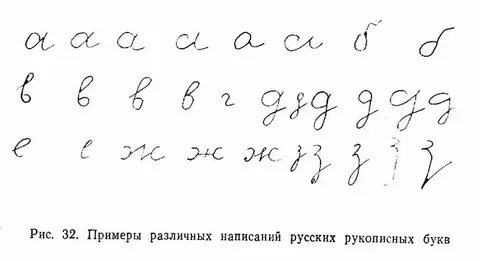 а а а а а а б б
в в в в г д д д д д д
е е ж ж ж з з з з з
Рис. 32. Примеры различных написаний русских рукописных букв